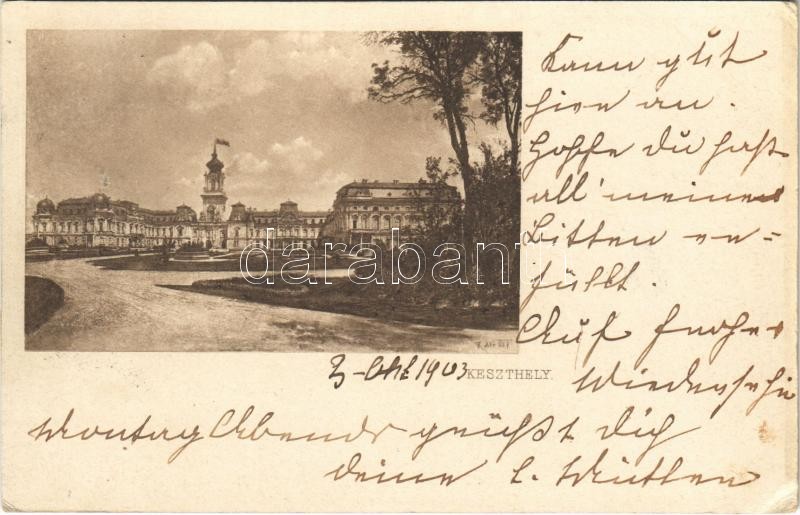 Kam gut
hier an.
Hoffe du hast
all' meine
Bitten er=
füllt.
Auf frohes
Wiedersehn
Montag Abends grüßt Dich
deine l. Mutter
3. Okt 1903
KESZTHELY.
darabanth